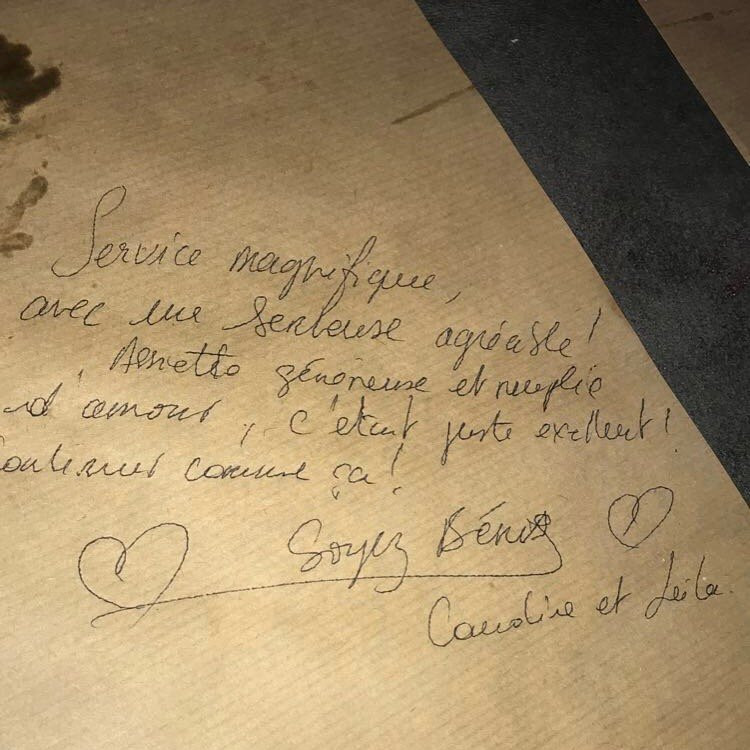 Service magnifique,
avec une serveuse agréable!
Assiette généreuse et remplie
d'amour, c'était juste excellent!
Continuez comme ça!
Soyez Bénis
Caroline et Leila.